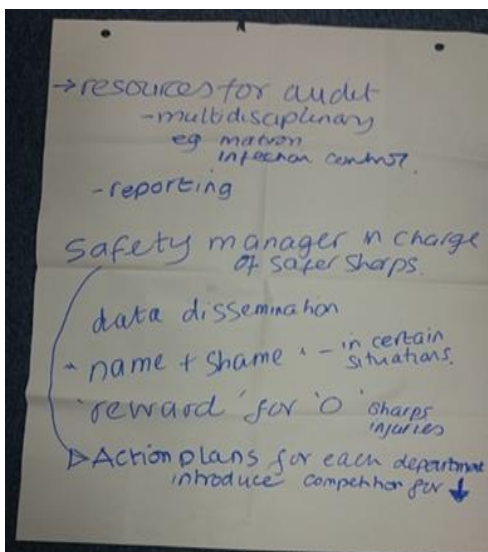 → resources for audit
- multidisciplinary
eg matron
infection control.
- reporting
Safety manager in charge
of safer sharps.
data dissemination
" name + shame " - in certain
situations.
'reward' for 'O' sharps
injuries
Action plans for each department
introduce competition for ↓